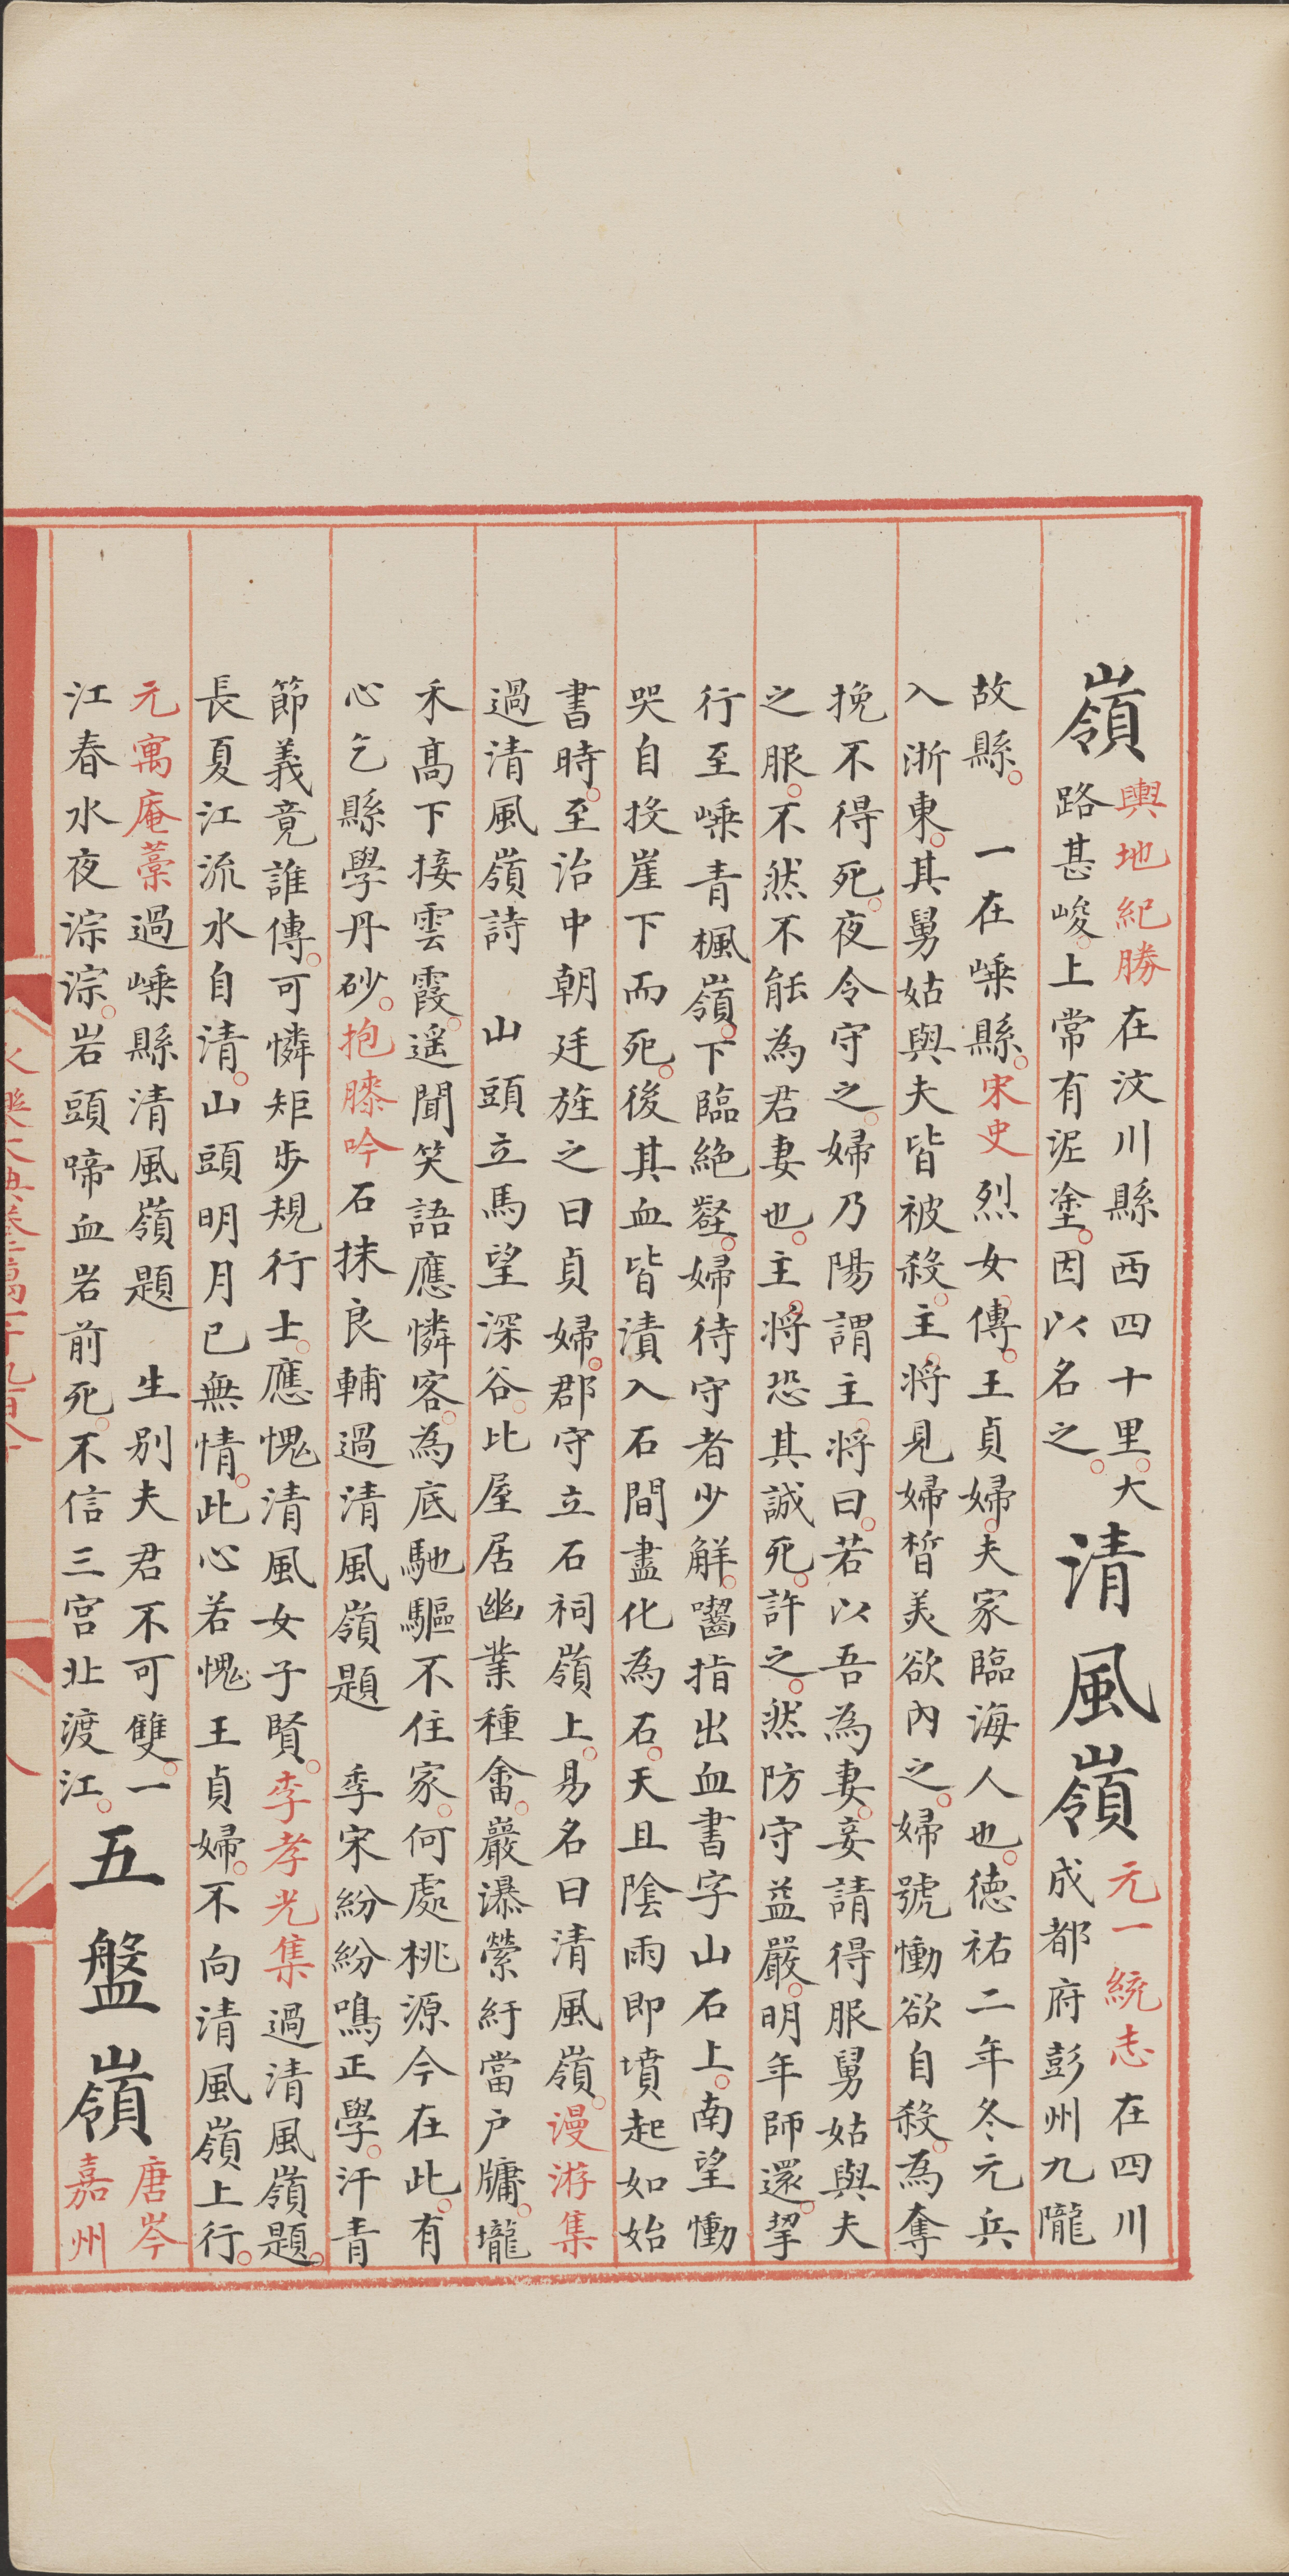 嶺
輿地紀勝在汶川縣西四十里。大
路甚峻。上常有泥塗。因以名之。
清風嶺
元一統志在四川
成都府彭州九隴
故縣。　一在嵊縣。宋史烈女傳。王貞婦。夫家臨海人也。德祐二年冬元兵
入浙東。其舅姑與夫皆被殺。主將見婦皙美欲內之。婦號慟欲自殺。為奪
挽不得死。夜令守之。婦乃陽謂主將曰。若以吾為妻。妾請得服舅姑與夫
之服。不然不能為君妻也。主將恐其誠死。許之。然防守益嚴。明年師還。挈
行至嵊青楓嶺。下臨絕壑。婦待守者少解。囓指出血書字山石上。南望慟
哭自投崖下而死。後其血皆漬入石間盡化為石。天且陰雨即墳起如始
書時。至治中朝廷旌之曰貞婦。郡守立石祠嶺上。易名曰清風嶺。漫游集
過清風嶺詩　山頭立馬望深谷。比屋居幽業種畬。巖瀑縈紆當户牖。壠
禾髙下接雲霞。遥聞笑語應憐客。為底馳驅不住家。何處桃源今在此。有
心乞縣學丹砂。抱膝吟石抹良輔過清風嶺題　季宋紛紛鳴正學。汗青
節義竟誰傳。可憐矩步規行士。應愧清風女子賢。李孝光集過清風嶺題。
長夏江流水自清。山頭明月已無情。此心若愧王貞婦。不向清風嶺上行。
元寓庵藁過嵊縣清風嶺題　生別夫君不可雙。一
江春水夜淙淙。岩頭啼血岩前死。不信三宮北渡江。
五盤嶺
唐岑
嘉州